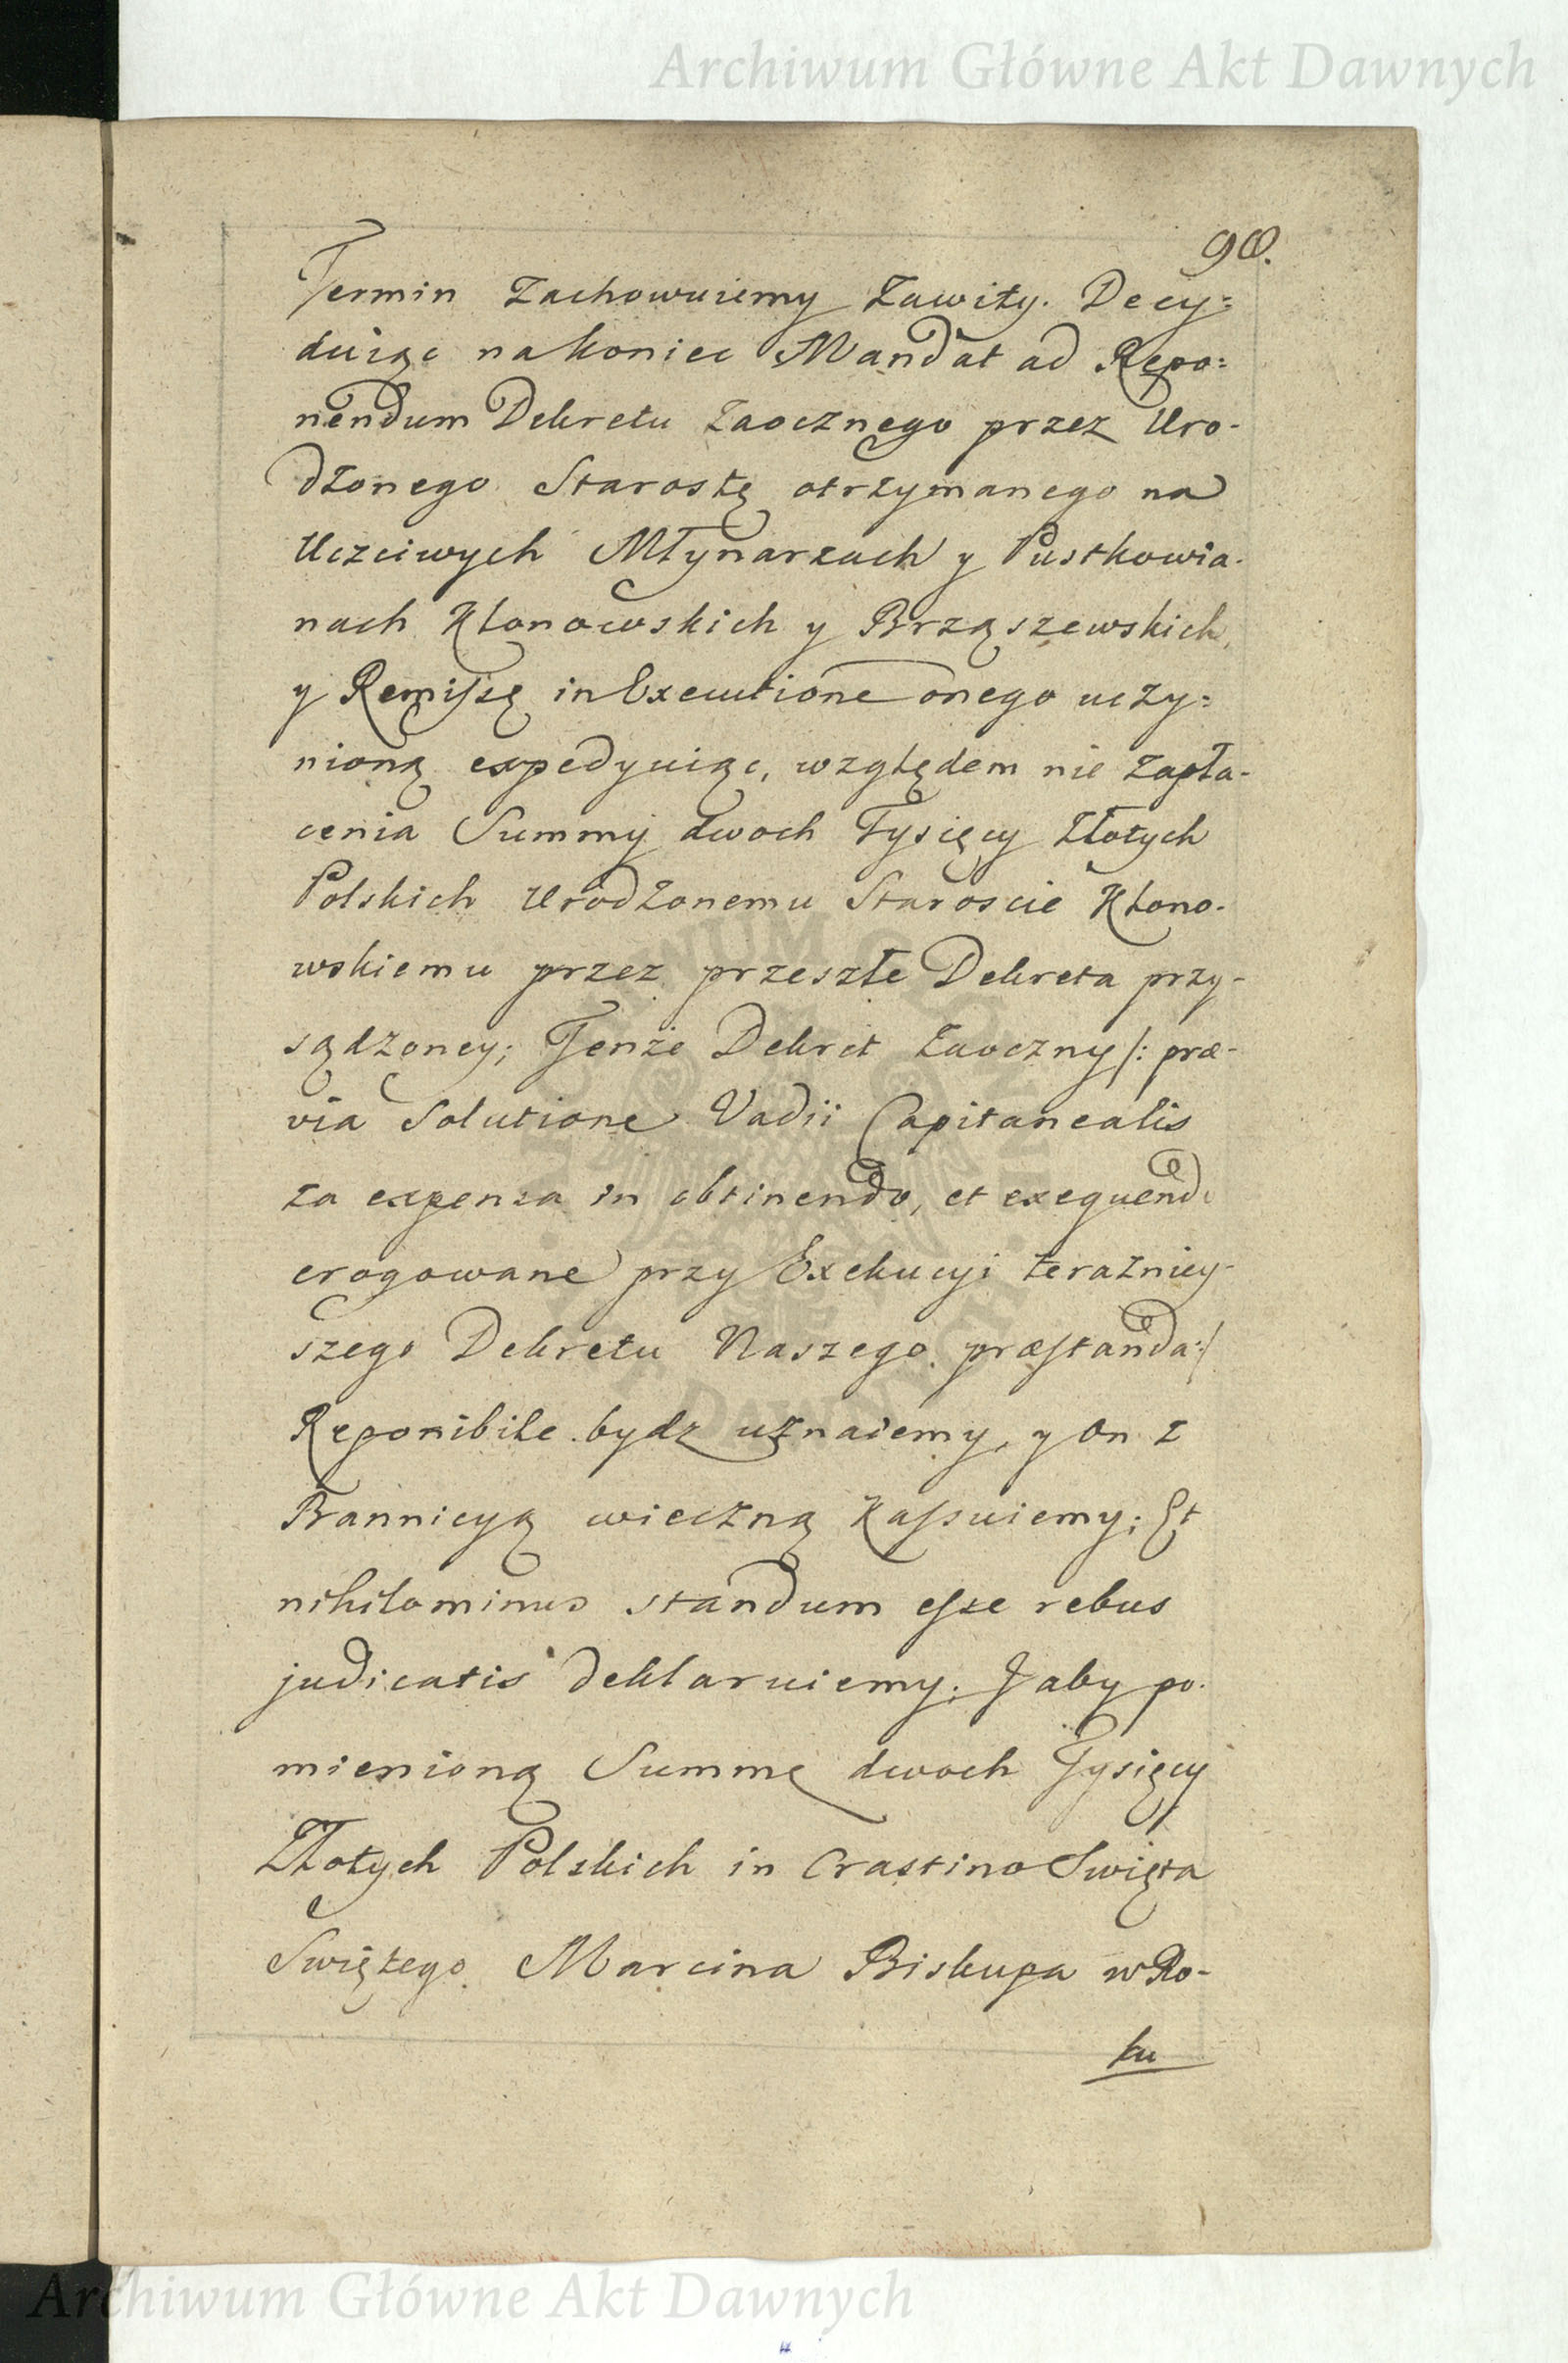 Archiwum Główne Akt Dawnych
90.
Termin zachowuiemy zawity. Decy=
duiąc nakoniec Mandat ad Repo=
nendum Dekretu zaocznego przez Uro-
dzonego Starostę otrzymanego na
Uczciwych Młynarzach y Pustkowia-
nach Kłonowskich y Brząszewskich,
y Remissę in Executione onego uczy=
nioną expedyuiąc, względem nie zapła-
cenia Summy dwoch Tysięcy Złotych
Polskich Urodzonemu Staroscie Kłono-
wskiemu przez przeszłe Dekreta przy-
sądzoney; Tenże Dekret zaoczny /: præ-
via Solutione Vadii Capitanealis
za expensa in obtinendo, et exequendo
erogowane przy Exekucyi teraźniey-
szego Dekretu Naszego præstanda :/
Reponibile bydz uznaiemy, y On z
Bannicyą wieczną kassuiemy; Et
nihilominus standum esse rebus
judicatis deklaruiemy; J aby po-
mienioną Summę dwoch Tysięcy
Złotych Polskich in Crastino Swięta
Swiętego Marcina Biskupa w Ro-
ku
Archiwum Główne Akt Dawnych